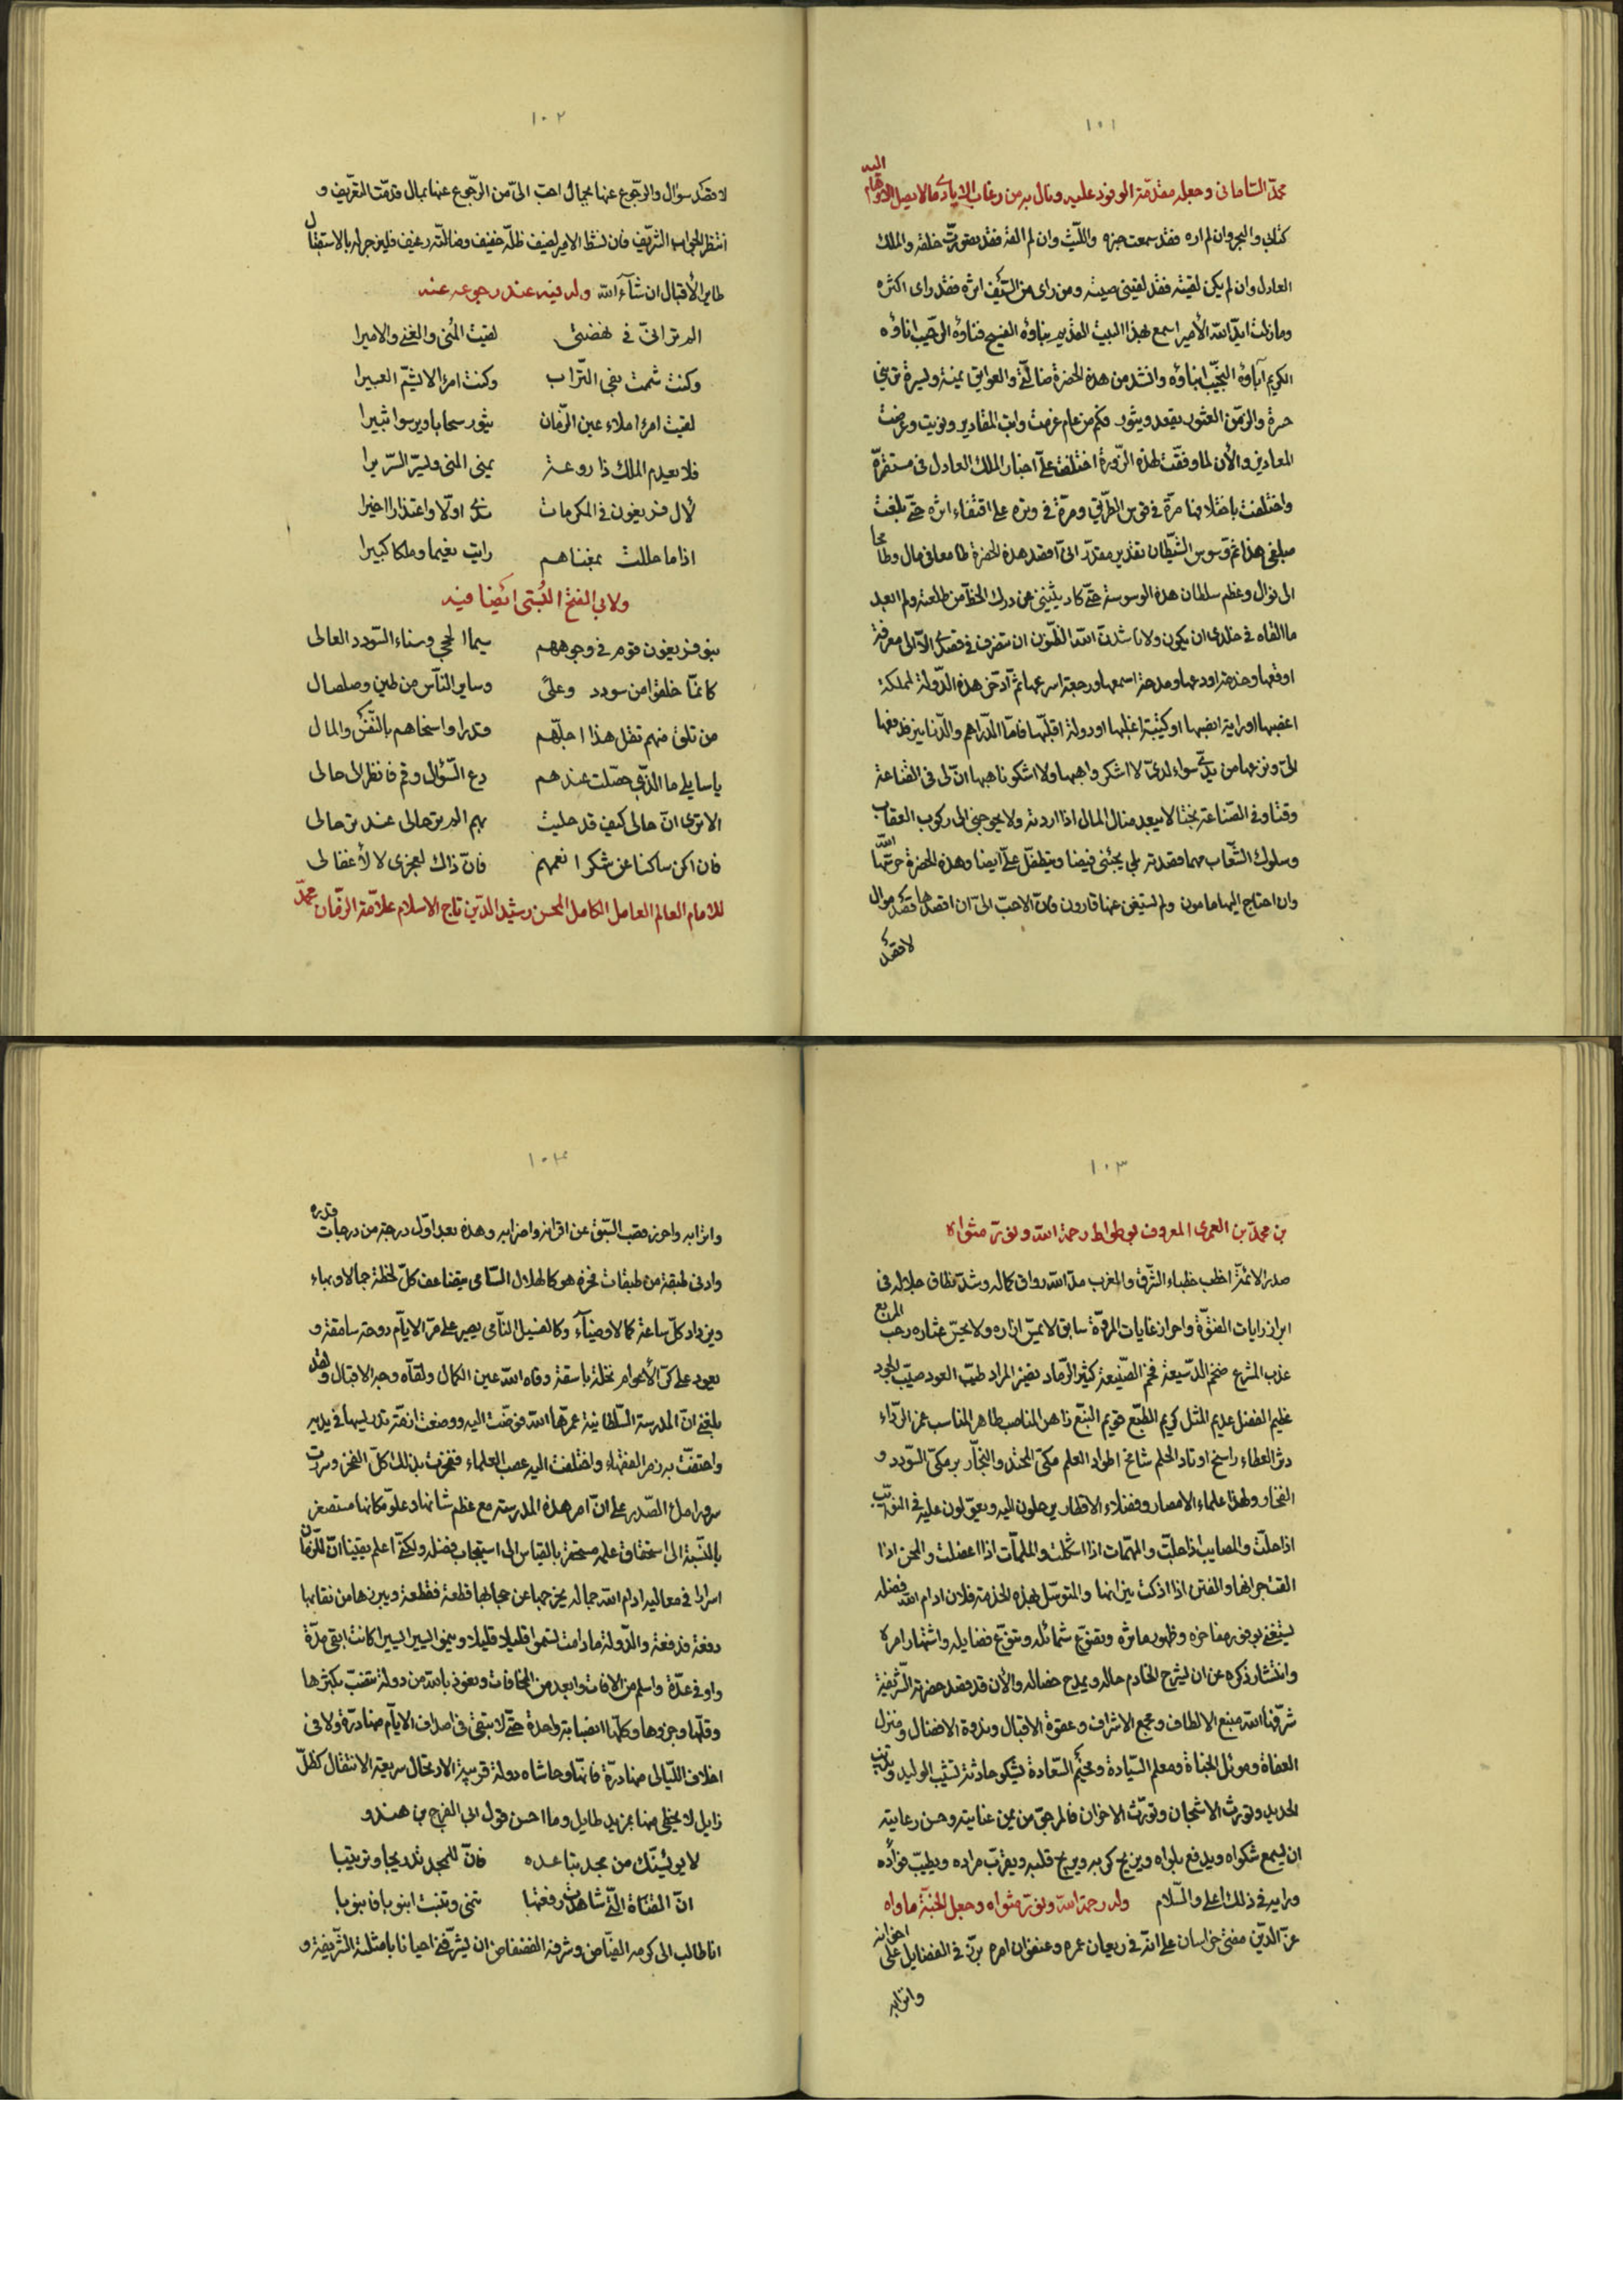 ١٠١
محمد السامانى وجعله مقدمة الوفود عليه ونال به من رغاب الايادى مالا يصل الاوهام اليه
كتابى والبحر وان لم اره فقد سمعت خبره والليث وان لم القه فقد تصورت خلقه والملك
العادل وان لم يكن لقيته فقد لقينى صيته ومن راى من السيف اثره فقد راى اكثره
وما زلت ايد الله الأمير اسمع بهذا البيت القديم بناؤه الفسيح فناؤه الرحيب اناؤه
الكريم آباؤه النجيب ابناؤه وانشد من هذه الحضرة ضالتى والعوايق يمنة ويسرة ترينى
حسرة والزمن العثور يقعد ويثور فكم من عام عزمت وابت المقادير ونويت وعرضت
المعاذير والأن لما وفقت لهذه الزورة اختلفت على اخبار الملك العادل فى مستقره
واختلفت باختلافها مرة فى قوس الطريق ومرة فى وتره على اقتفاء اثره حتى بلغت
مبلغى هذا ثم وسوس الشيطان تقدير مقدر انى اقصد هذه الحضرة طامعا فى مال وطامحا
الى نوال وعظم سلطان هذه الوسوسة حتى كاد يثنينى عن درك الحظ من طلعته ولم ابعد
ما القاه فى خلدى ان يكون ولا ناشدت الله الظنون ان تتصرف فى قصدى الا الى معرفة
اوقعها وخدمة اودعها ومدحة اسمعها ورجعة اسرعها ثم آدخر هذه الدولة لمملكة
اغصبها او راية انصبها او كتيبة اغلبها او دولة اقلبها فاما الدراهم والدنانير فدفعها
الى ونزعها من يدى سواء لدى لا اشكر واهبها ولا اشكو ناهبها ان لى فى القناعة
وقتا وفى الصناعة بختا لا يبعد منال المال اذا اردته ولا يحوجنى الى ركوب العقاب
وسلوك الشعاب مهما قصدته بلى يجئنى فيضا ويتطفل على ايضا وهذه الحضرة حرسها الله
وان احتاج اليها مامون ولم يستغن عنها قارون فان الاحب الى ان اقصدها قصد موال
لا قصد
١٠٢
لا قصد سوال والرجوع عنها بجمال احب الى من الرجوع عنها بمال قدمت التعريف و
انتظر الجواب الشريف فان نشط الامير لضيف ظله خفيف وضالته رغيف فليزجر له بالاستقبال
طاير الأقبال ان شآء الله وله فيه عند رجوعه عنه
الم تر انى فى نهضتى لقيت المنى والغنى والاميرا
وكنت شممت بفى التراب وكنت امرء الا يشم العبيرا
لقيت امرء املاء عين الزمان يثور سحابا ويرسو ثبيرا
فلا يعدم الملك ذا روعة يمنى المنى ويسر السريرا
لأل فريغون فى المكرمات يدى اولا واعتذارا اخيرا
اذا ما حللت بمغناهم رايت نعيما وملكا كبيرا
ولابى الفتح البستى ايضا فيه
بنو فريغون قوم فى وجوههم سيما الحجى وسناء السودد العالى
كانما خلقوا من سودد وعلى وساير الناس من طين وصلصال
من تلق منهم تقل هذا اجلهم قدرا واسخاهم بالنفس والمال
يا سايلى ما الذى حصلت عندهم دع السؤال وقم فانظر الى حالى
الا ترى ان حالى كيف قد حليت بهم الم تر حالى عند ترحالى
فان اكن ساكتا عن شكر انعمهم فان ذاك لعجزى لا لأغفالى
للامام العالم العامل الكامل المحسن رشيد الدين تاج الاسلام علامة الزمان محمد
١٠٣
بن محمد بن العمرى المعروف بوطواط رحمه الله ونور مثواه
صدر الائمة اخطب خطباء الشرق والمغرب مد الله رواق كماله وشد نطاق جلاله فى
ابراز رايات الفتوة واحراز غايات المروة سابق لا يمس ازاره ولا يحس عثاره رحب المربع
عذب المشرع ضخم الدسيعة فخم الصنيعة كثير الرماد بقية المراد طيب العود صيب الجود
عظيم الفضل عديم المثل كريم الطبع قويم النبع زاهر المناصب طاهر المناسب غمر الرداء
دثر العطاء راسخ اوتاد الحلم شامخ اطواد العلم مكى المحتد والنجار برمكى السودد و
الفخار ولهذا علماء الامصار وفضلاء الاقطار يرحلون اليه ويعولون عليه فى النوايب
اذا حلت والمصايب اذا جلت والمهمات اذا اشكلت والملمات اذا اعضلت والمحن اذا
القت جرانها والفتن اذا اذكت نيرانها والمتوسل بهذه الخدمة فلان ادام الله فضله
يستغنى بوفور مفاخره وظهور ماثره وتضوع شمائله وتنوع فضايله واشتهار امره
وانتشار ذكره عن ان يشرح الخادم حاله ويمدح خصاله والأن قد قصد حضرته الشريفة
شرفها الله منبع الالطاف ومجمع الاشراف وعقوة الاقبال وندوة الافضال ومنزل
العفاة وموئل الجناة ومعلم السيادة ومخيم السعادة يشكو حادثة تشيب الوليد وتذيب
الحديد وتورث الاشجان وتورث الاحزان فالمرجو من يمن عنايته وحسن رعايته
ان يسمع شكواه ويدفع بلواه ويزيح كربه ويريح قلبه ويقرب مراده ويطيب فؤاده
ورايه فى ذلك اعلى والسلام وله رحمه الله ونور مثواه وجعل الجنة ماواه
عز الدين مفتى خراسان على انه فى ريعان عمره وعنفوان امره برز فى الفضايل على اخوانه
واترابه
١٠٤
واترابه واحرز قصب السبق عن اقرانه واضرابه وهذه بعد اول درجة من درجات قدره
وادنى طبقة من طبقات فخره هو كالهلال السامى يتضاعف كل لحظة جمالا وبهاء
ويزداد كل ساعة كمالا وضيآء وكالفسيل النامى يصير على مر الايام دوحة سامقة و
يعود على كر الأعوام نخلة باسقة وقاه الله عين الكمال ولقاه وجه الاقبال ولقد
بلغنى ان المدرسة السلطانية عمرها الله فوضت اليه ووضعت ازمة تدريسها فى يديه
واحتفت به زمر الفقهاء واختلفت اليه عصب العلماء ففخرت بذلك كل الفخر وسررت
سرورا ملء الصدر على ان امر هذه المدرسة مع عظم شانها وعلو مكانها مستصغر
بالنسبة الى استحقاق علمه مستحقر بالقياس الى استيجاب فضله ولكنى اعلم يقينا ان للزمان
اسرارا فى معاليه ادام الله جماله يخرجها عن حجابها قطعة فقطعة ويبرزها من نقابها
دفعة فدفعة والدولة ما دامت تسمو قليلا قليلا وينمو اليسير اليسيرا كانت ابقى مدة
واوفى عدة واسلم من الافات وابعد من المخافات ونعوذ بالله من دولة تنصب بكثرها
وقلها وجزوها وكلها انصبابة واحدة حتى لا يبقى فى اصداف الايام منها درة ولا فى
اخلاف الليالى منها درة فانها وحاشاه دولة قريبة الارتحال سريعة الانتقال كظل
زايل لا يحظى منها بمزيد طايل وما احسن قول ابى الفرج بن هندو
لا يوئسنك من مجد تباعده فان للمجد تدريجا وترتيبا
ان القناة التى شاهدت رفعتها تنمى وتنبت انبوبا فانبوبا
انا طالب الى كرمه الفياض وشرفه الفضفاض ان يشرفنى احيانا بامثلته الشريفة و